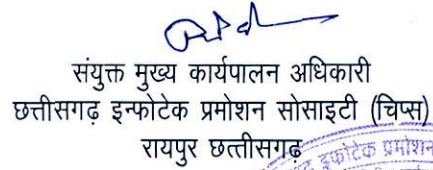 संयुक्त मुख्य कार्यपालन अधिकारी
छत्तीसगढ़ इन्फोटेक प्रमोशन सोसाइटी (चिप्स)
रायपुर छत्तीसगढ़
इन्फोटेक प्रमोशन